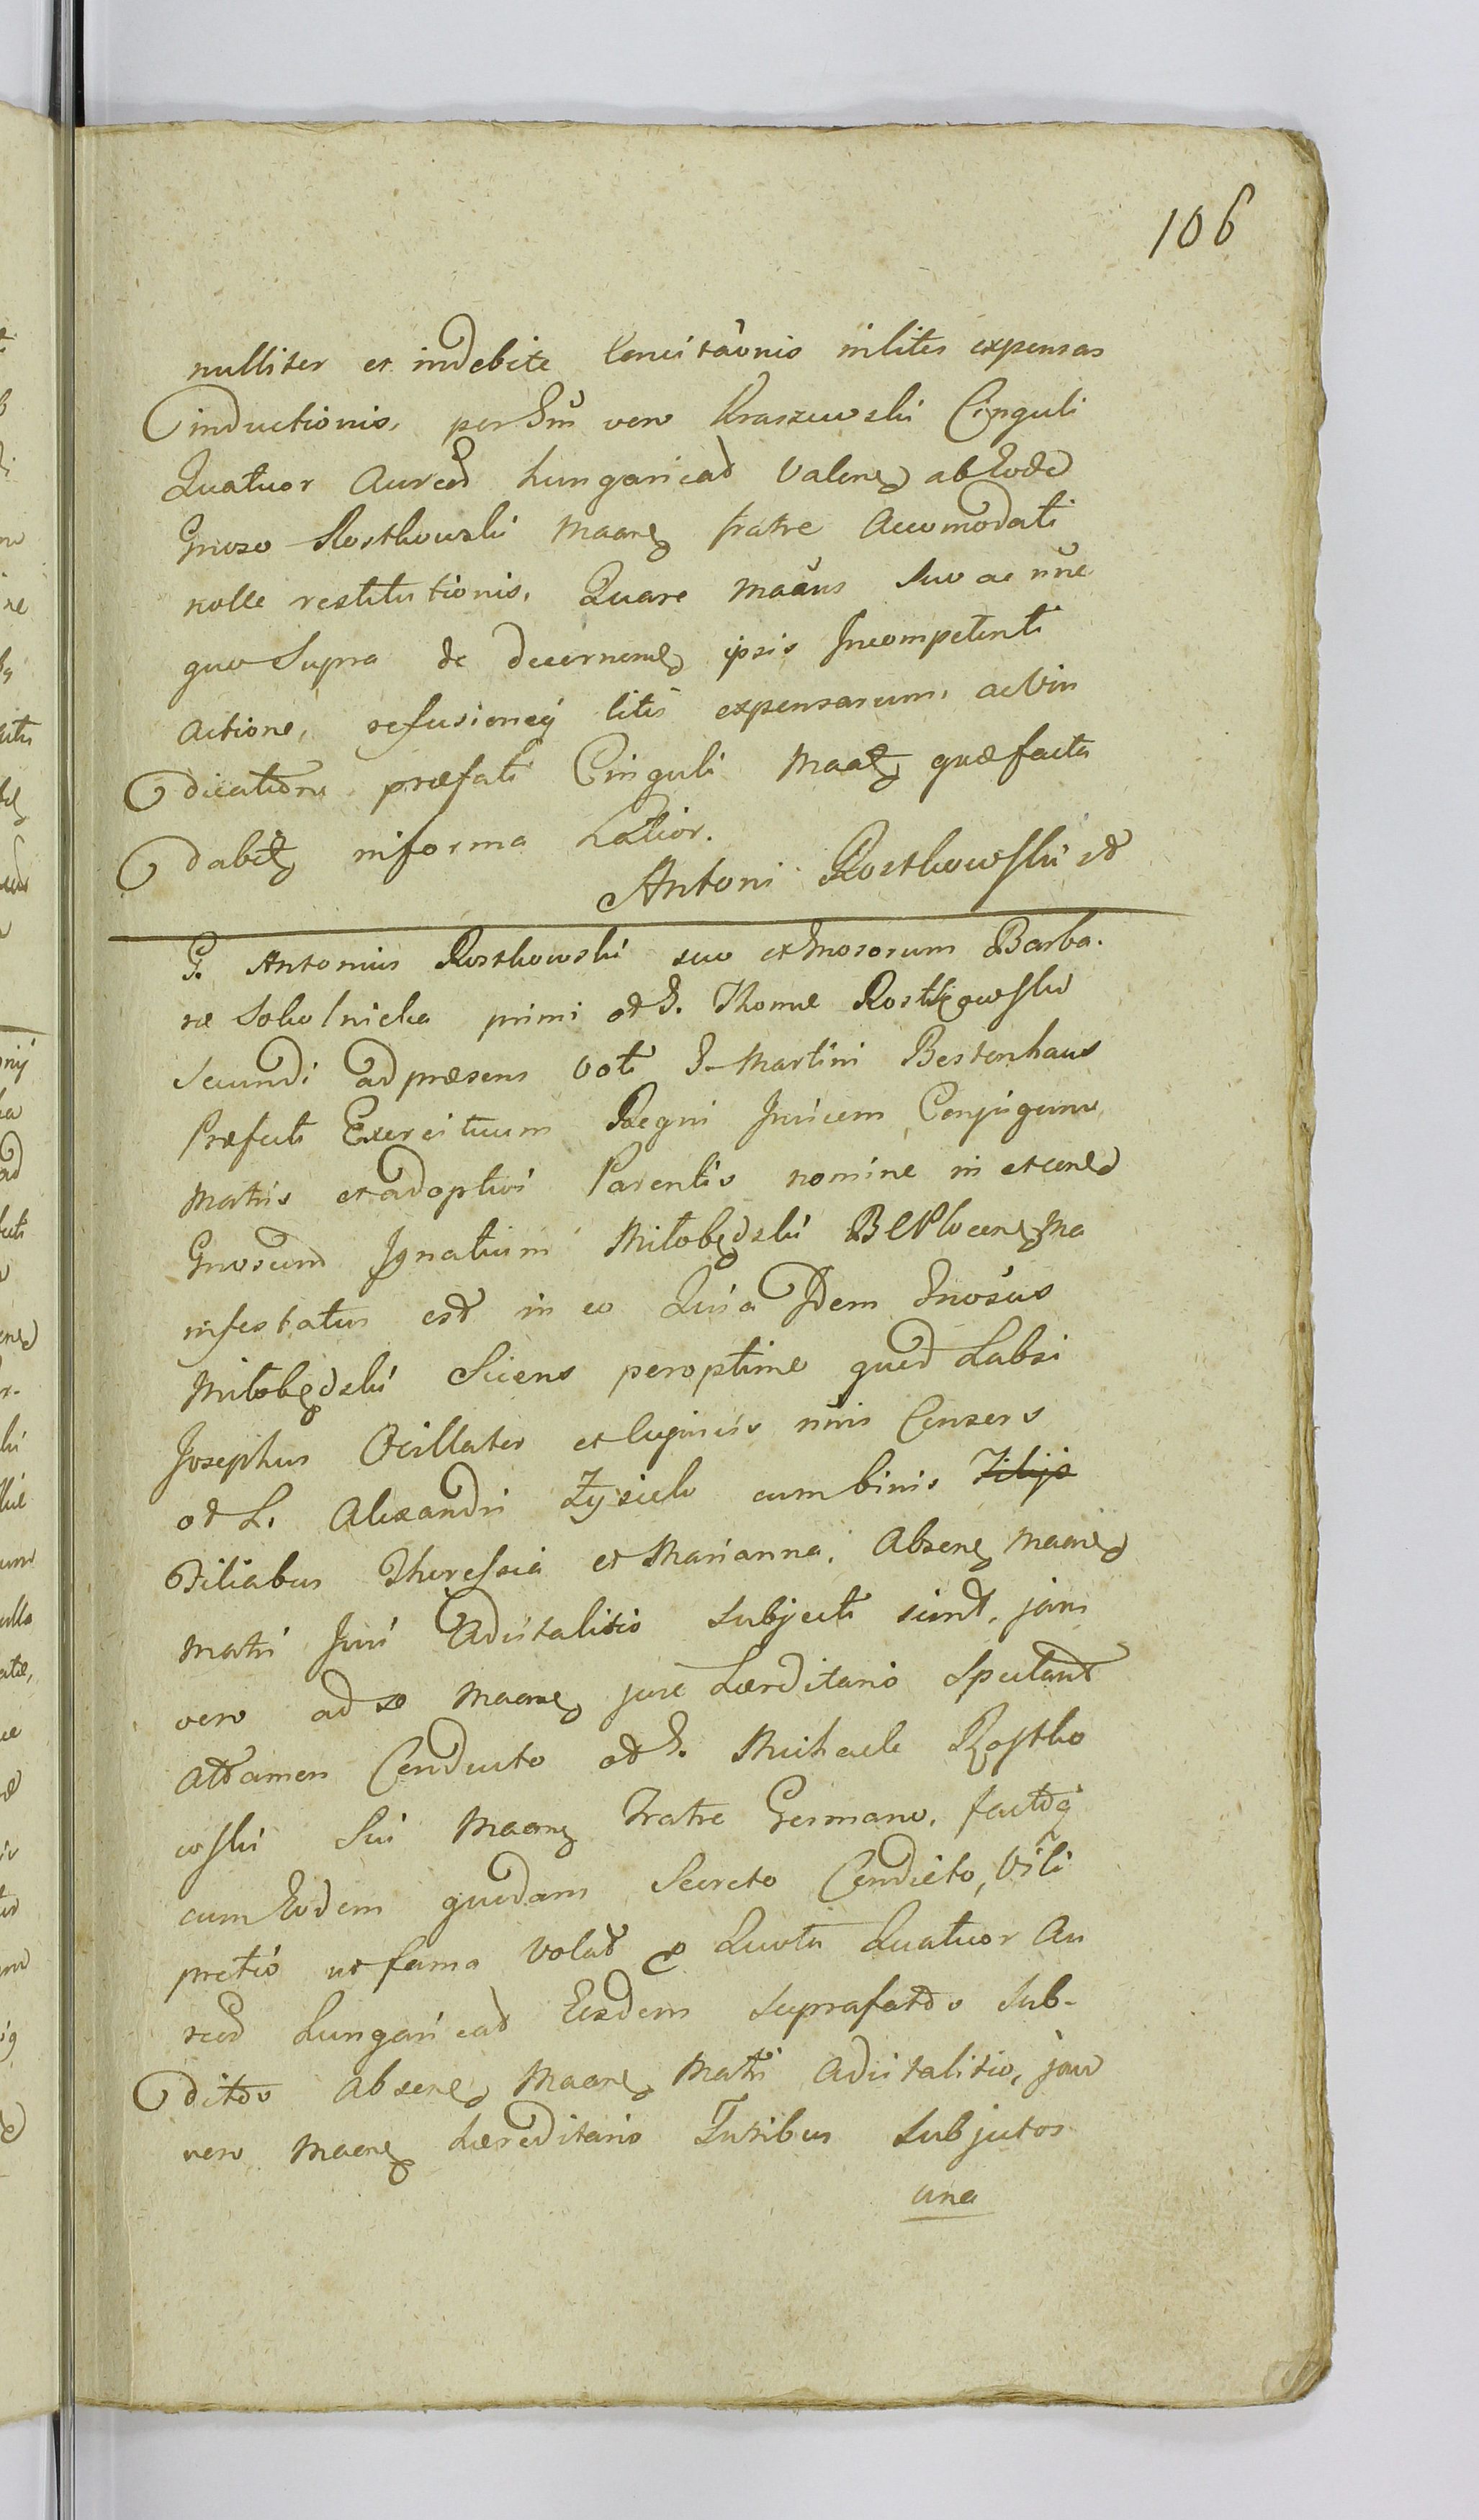 106
nulliter et indebite Concitaõnis inlites expensas
inductionis, per Gm̃ vero Kraszewski Cinguli
Quatuor Aureoȝ hungaricaȝ Valenȝ ab Eodȝ
Gnoso Rostkowski Maanȝ fratre Accomodati
nolle restitutionis, Quare Maãns suo ac nñe
quo Supra de decernenȝ ipsis Incompetenti
actione, refusioneq̃ litis expensarum, ac Vin
dicatione præfati Cinguli Maatȝ quæ facta
dabitȝ informa Latior.
Antoni Rostkowski
G. Antonius Rostkowski suo et Gnosorum Barba-
ræ Sokolnicka primi ol G. Thomæ Rostkowski
Secundi ad præsens Voti G. Martini Bestenhaus
Præfecti Exercituum Regni Invicem Conjugum
Matris et adoptivi Parentis nomine in et conȝ
Gnosum Ignatium Miłobędzki BCPlocenȝ Ma
nifestatus est in eo Quia Idem Gnosus
Miłobędzki Sciens peroptime quod Labsi
Josephus Ocillator et luginiis nñis Consors
ol L. Alexandri Zysiek cum binis Filijs
Filiabus Theressia et Marianna, Absenȝ Maanȝ
Matri Juri Advitalitio Subjecti sunt, jam
vero ad se Maanȝ jure hærditario Spectant
attamen Conducto ol G. Michaele Rostko
wski Sui Maanȝ Fratre Germano, factoq̃
cum Eodem quodam Secreto Condicto, Vili
pretio ut fama Volat p Quota Quatuor Au
reoȝ hungaricaȝ Eosdem suprafatos Sub-
ditos Absenȝ Maanȝ Matri advitalitio, jam
vero Maanȝ hæreditario Juribus Subjectos
una